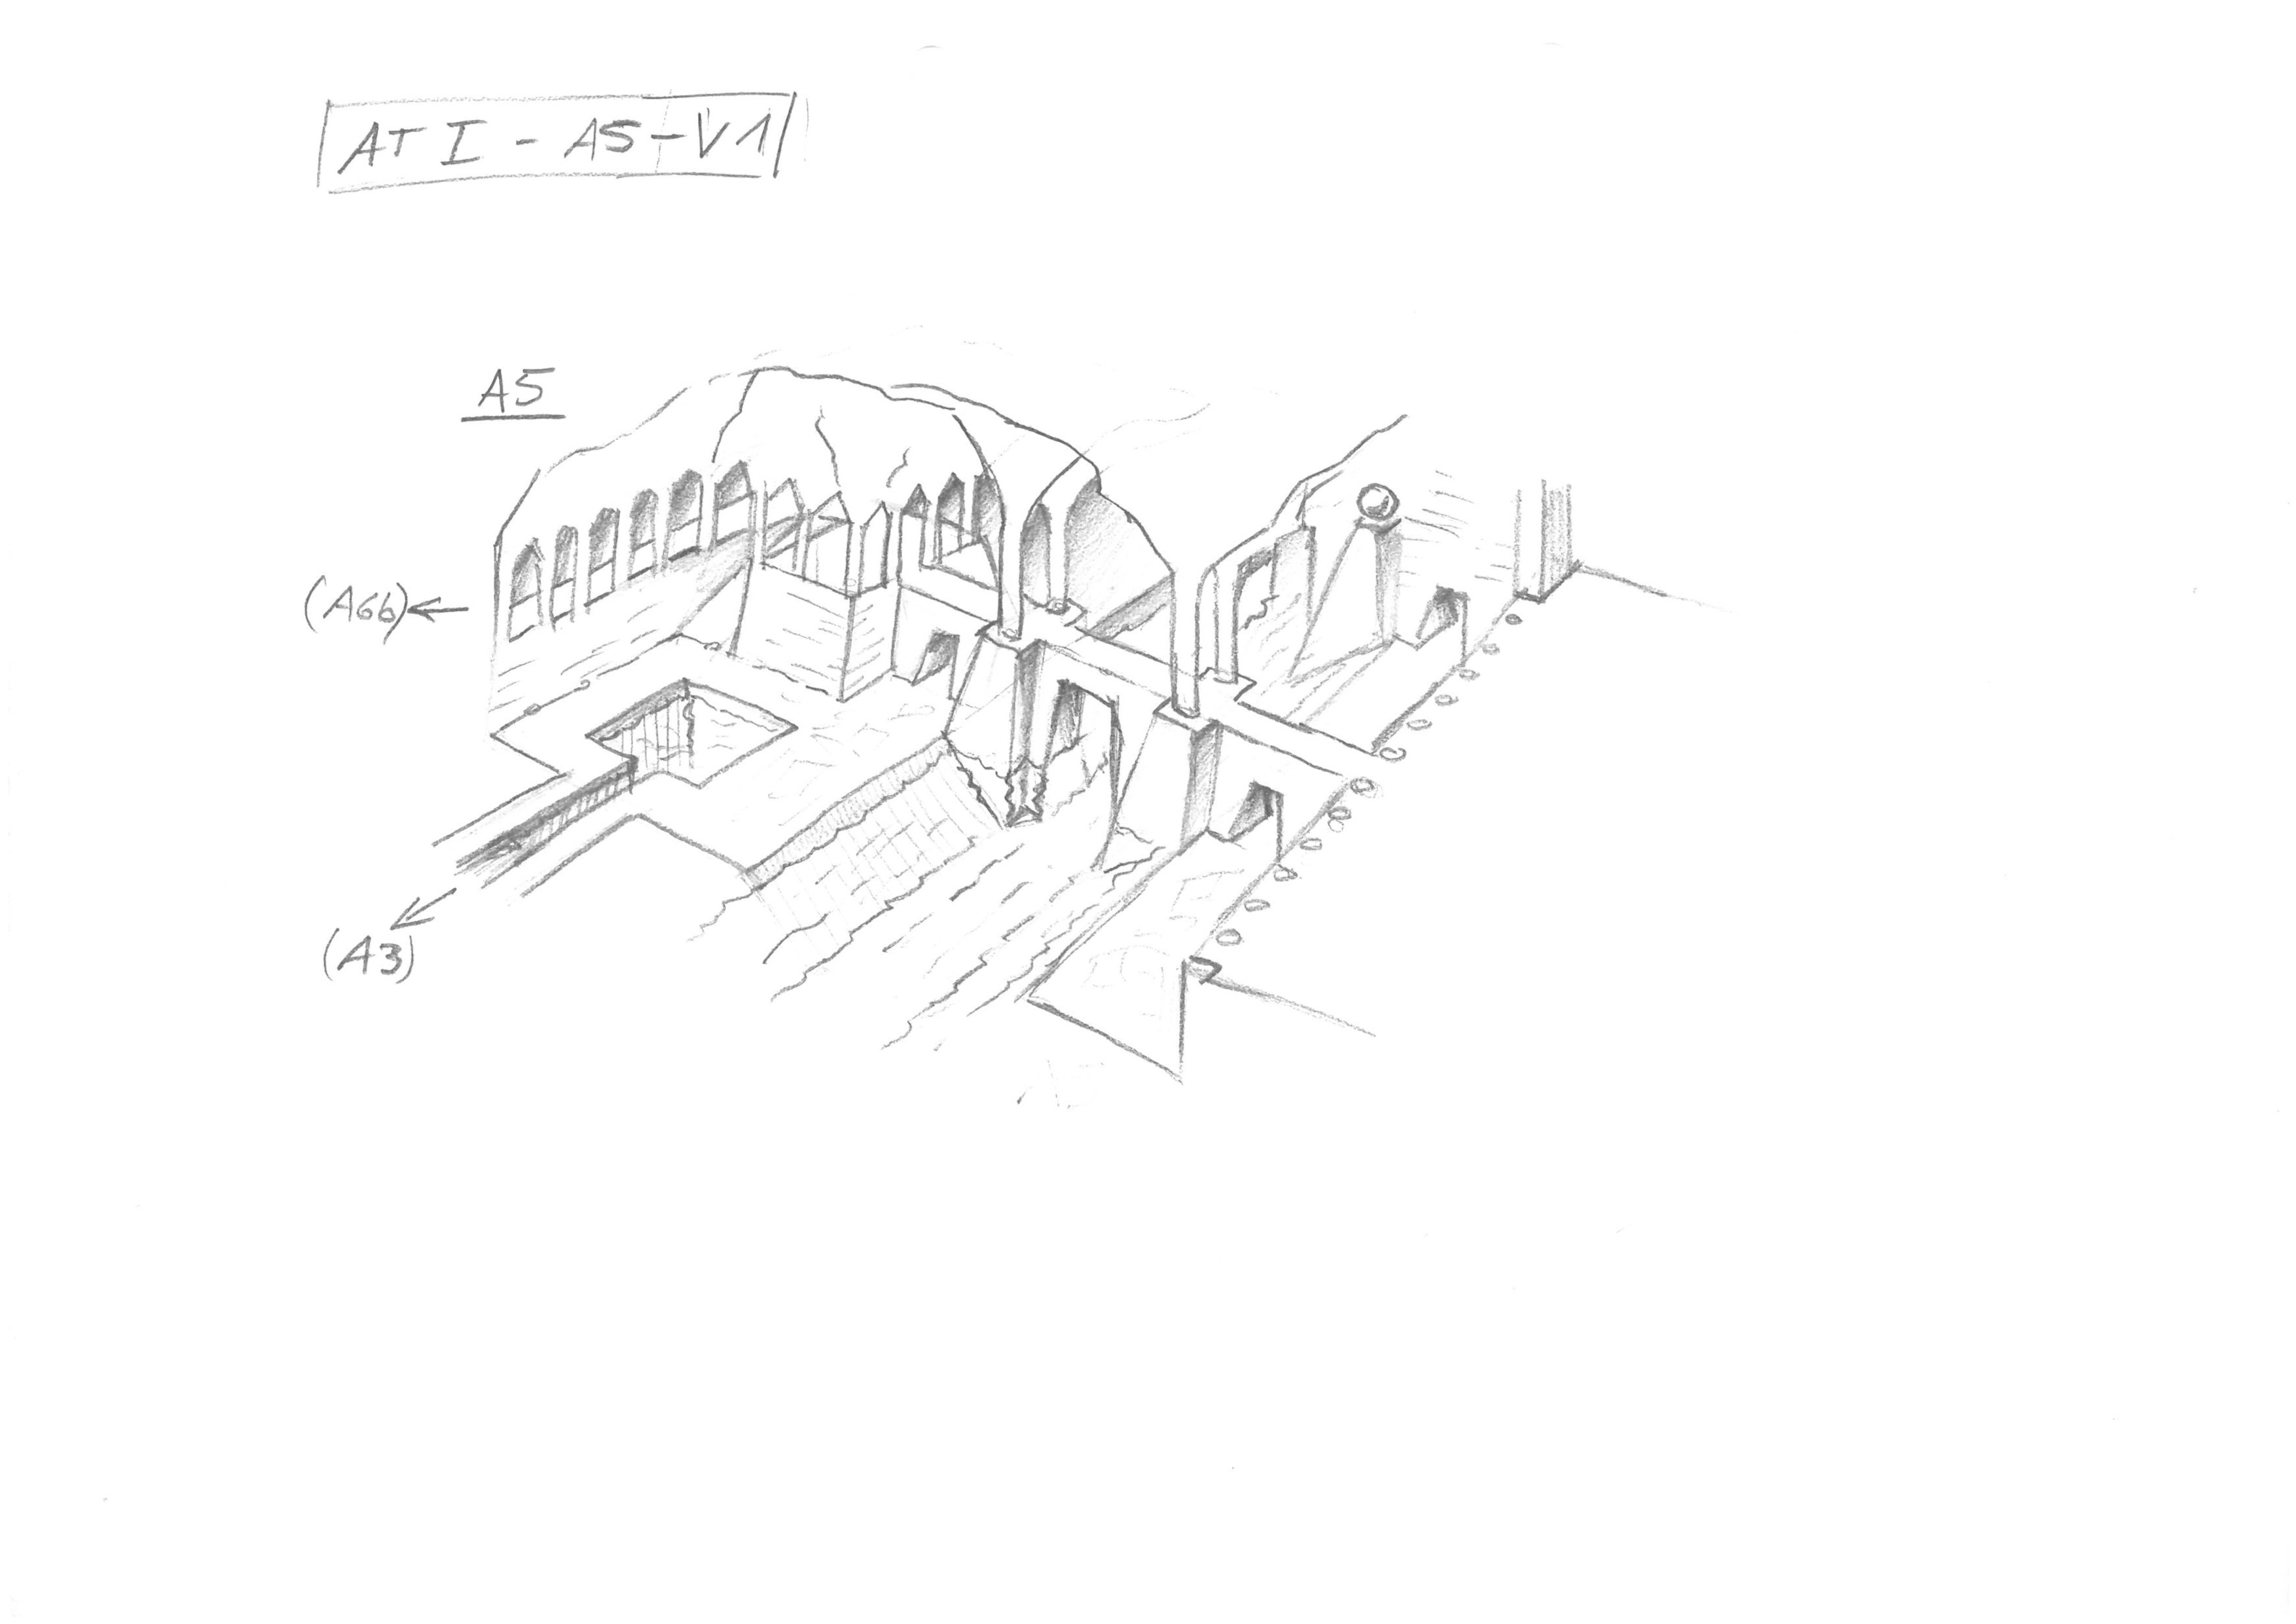 AT I - A5 - V1
A5
(A6b)
(A3)